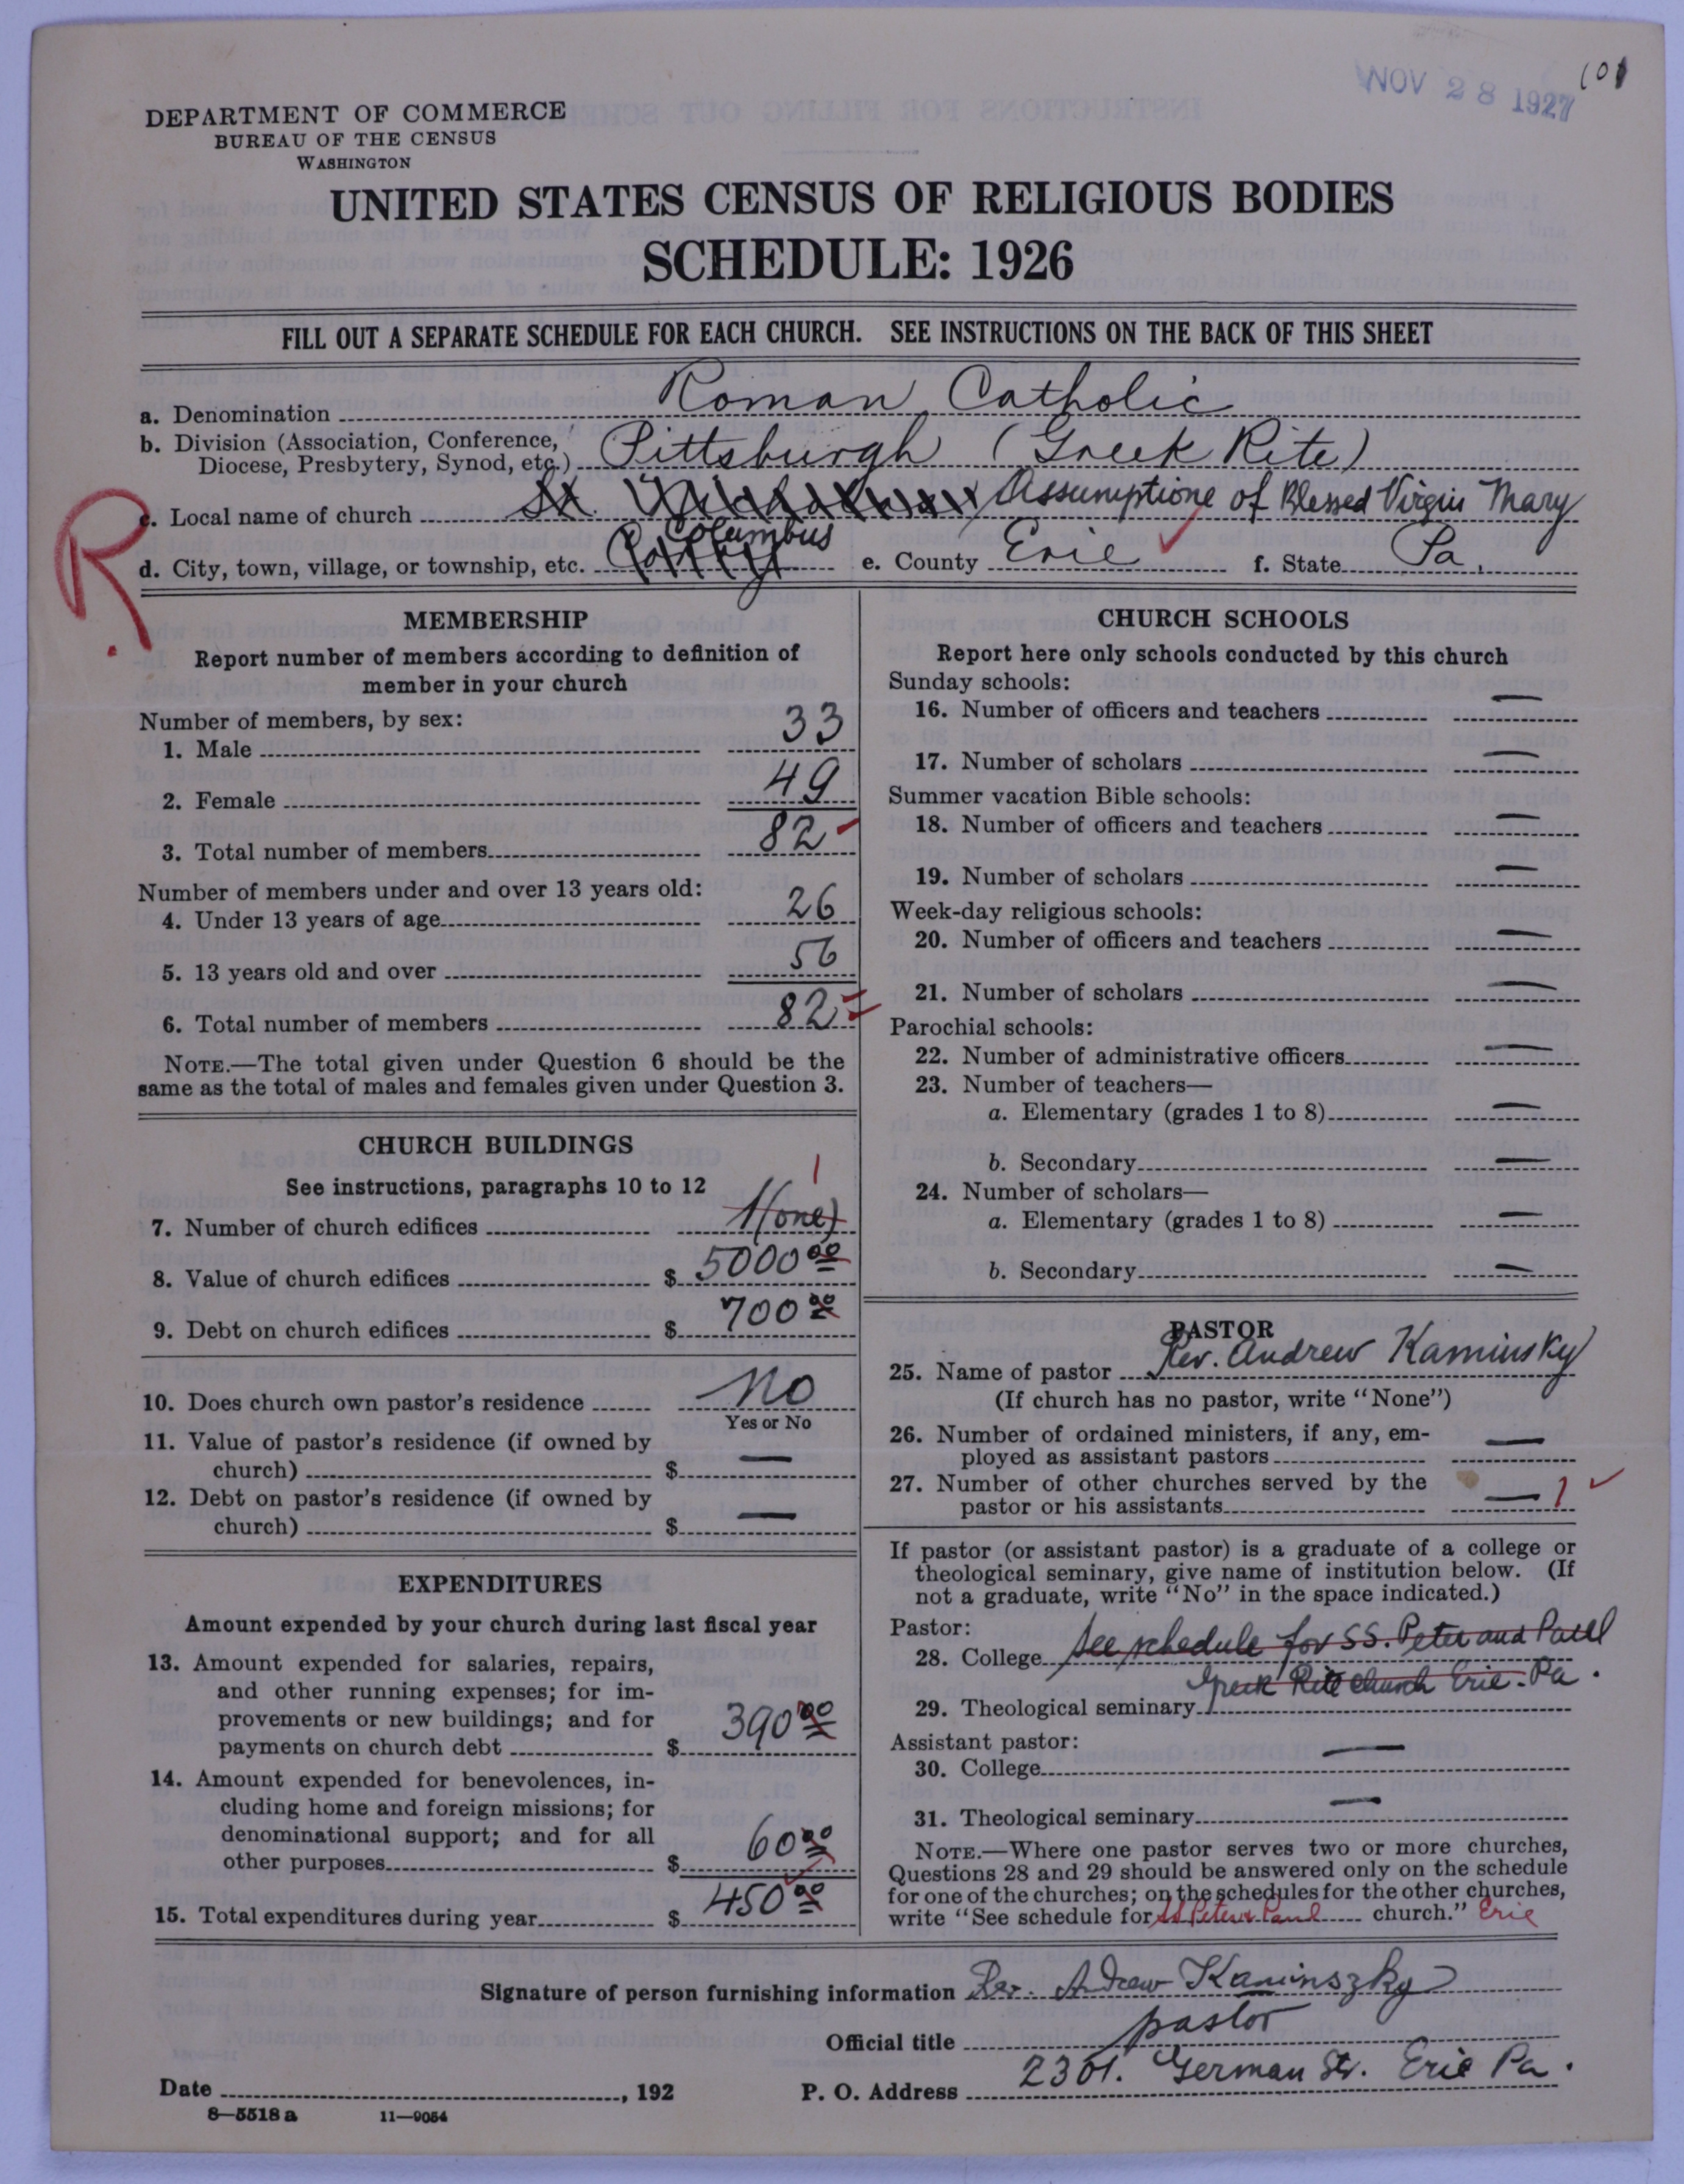 NOV 28 1927
101
DEPARTMENT OF COMMERCE
BUREAU OF THE CENSUS
WASHINGTON
UNITED STATES CENSUS OF RELIGIOUS BODIES
SCHEDULE: 1926
FILL OUT A SEPARATE SCHEDULE FOR EACH CHURCH. SEE INSTRUCTIONS ON THE BACK OF THIS SHEET
a. Denomination Roman Catholic
b. Division (Association, Conference, Diocese, Presbytery, Synod, etc.) Pittsburgh (Greek Rite)
R.
c. Local name of church St. Assumptione of Blessed Virgin Mary
Columbus
d. City, town, village, or township, etc. Corry e. County Erie ✓ f. State Pa.
MEMBERSHIP
Report number of members according to definition of
member in your church
Number of members, by sex:
1. Male 33
2. Female 49
3. Total number of members 82
Number of members under and over 13 years old:
4. Under 13 years of age 26
5. 13 years old and over 56
6. Total number of members 82
NOTE.—The total given under Question 6 should be the
same as the total of males and females given under Question 3.
CHURCH BUILDINGS
See instructions, paragraphs 10 to 12
1
7. Number of church edifices 1 (one)
8. Value of church edifices $ 5000 00
9. Debt on church edifices $ 700 00
10. Does church own pastor's residence No
Yes or No
11. Value of pastor's residence (if owned by
church) $ —
12. Debt on pastor's residence (if owned by
church) $ —
EXPENDITURES
Amount expended by your church during last fiscal year
13. Amount expended for salaries, repairs,
and other running expenses; for im-
provements or new buildings; and for
payments on church debt $ 390 00
14. Amount expended for benevolences, in-
cluding home and foreign missions; for
denominational support; and for all
other purposes $ 60 00
15. Total expenditures during year $ 450 00
CHURCH SCHOOLS
Report here only schools conducted by this church
Sunday schools:
16. Number of officers and teachers —
17. Number of scholars —
Summer vacation Bible schools:
18. Number of officers and teachers —
19. Number of scholars —
Week-day religious schools:
20. Number of officers and teachers —
21. Number of scholars —
Parochial schools:
22. Number of administrative officers —
23. Number of teachers—
a. Elementary (grades 1 to 8) —
b. Secondary —
24. Number of scholars—
a. Elementary (grades 1 to 8) —
b. Secondary —
PASTOR
25. Name of pastor Rev. Andrew Kaminsky
(If church has no pastor, write "None")
26. Number of ordained ministers, if any, em-
ployed as assistant pastors —
27. Number of other churches served by the
pastor or his assistants — 1 ✓
If pastor (or assistant pastor) is a graduate of a college or
theological seminary, give name of institution below. (If
not a graduate, write "No" in the space indicated.)
Pastor:
28. College See schedule for SS. Peter and Paul
Greek Rite church Erie. Pa.
29. Theological seminary
Assistant pastor:
30. College —
31. Theological seminary —
NOTE.—Where one pastor serves two or more churches,
Questions 28 and 29 should be answered only on the schedule
for one of the churches; on the schedules for the other churches,
write "See schedule for SS Peter & Paul church." Erie
Signature of person furnishing information Rev. Andrew Kaminszky
Official title pastor
Date , 192 P. O. Address 2301. German St. Erie Pa.
8—5518 a 11—9054